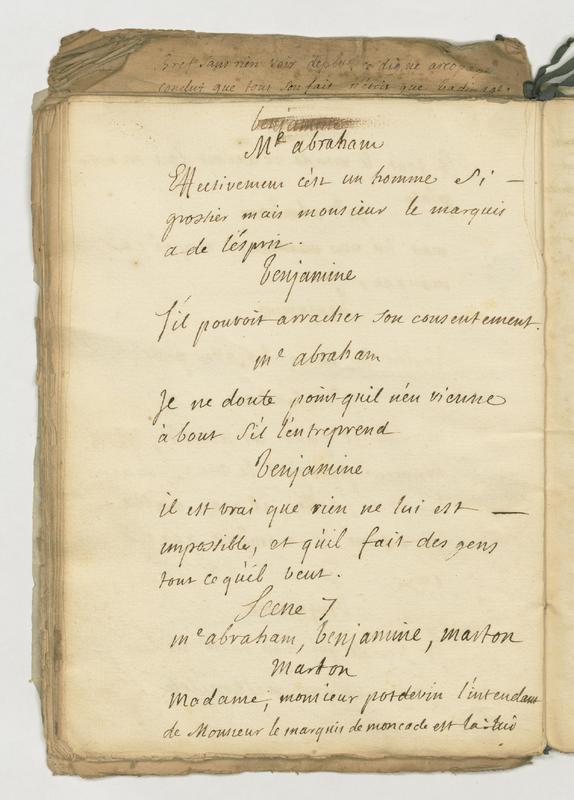 Bref sans rien voir
conclut que tout son fait que
benjamine
Me abraham
Effectivement c'est un homme si —
grossier mais monsieur le marquis
a de l'ésprit.
benjamine
s'il pouvoit arracher son consentement.
me abraham
Je ne doute point quil n'en vienne
à bout s'il l'entreprend
benjamine
il est vrai que rien ne lui est —
impossible, et qu'il fait des gens
tout ce qu'il veut.
Scene 7
me abraham, benjamine, marton
Marton
Madame, monsieur potdevin l'intendant
de Monsieur le marquis de moncade est la